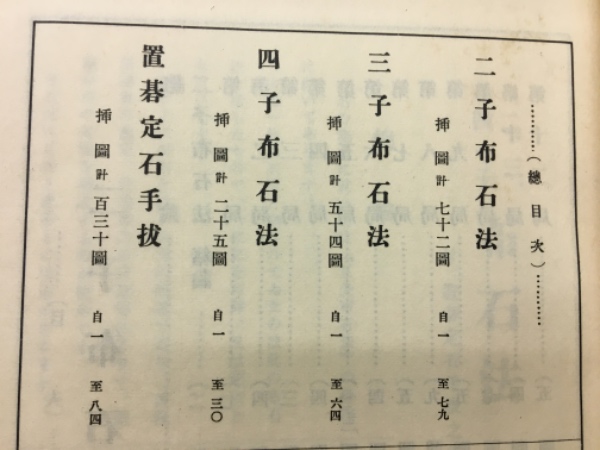 …………(總目次)…………
二子布石法
挿圖計七十二圖 自一 至七九
三子布石法
挿圖計五十四圖 自一 至六四
四子布石法
挿圖計二十五圖 自一 至三〇
置碁定石手拔
挿圖計百三十圖 自一 至八四